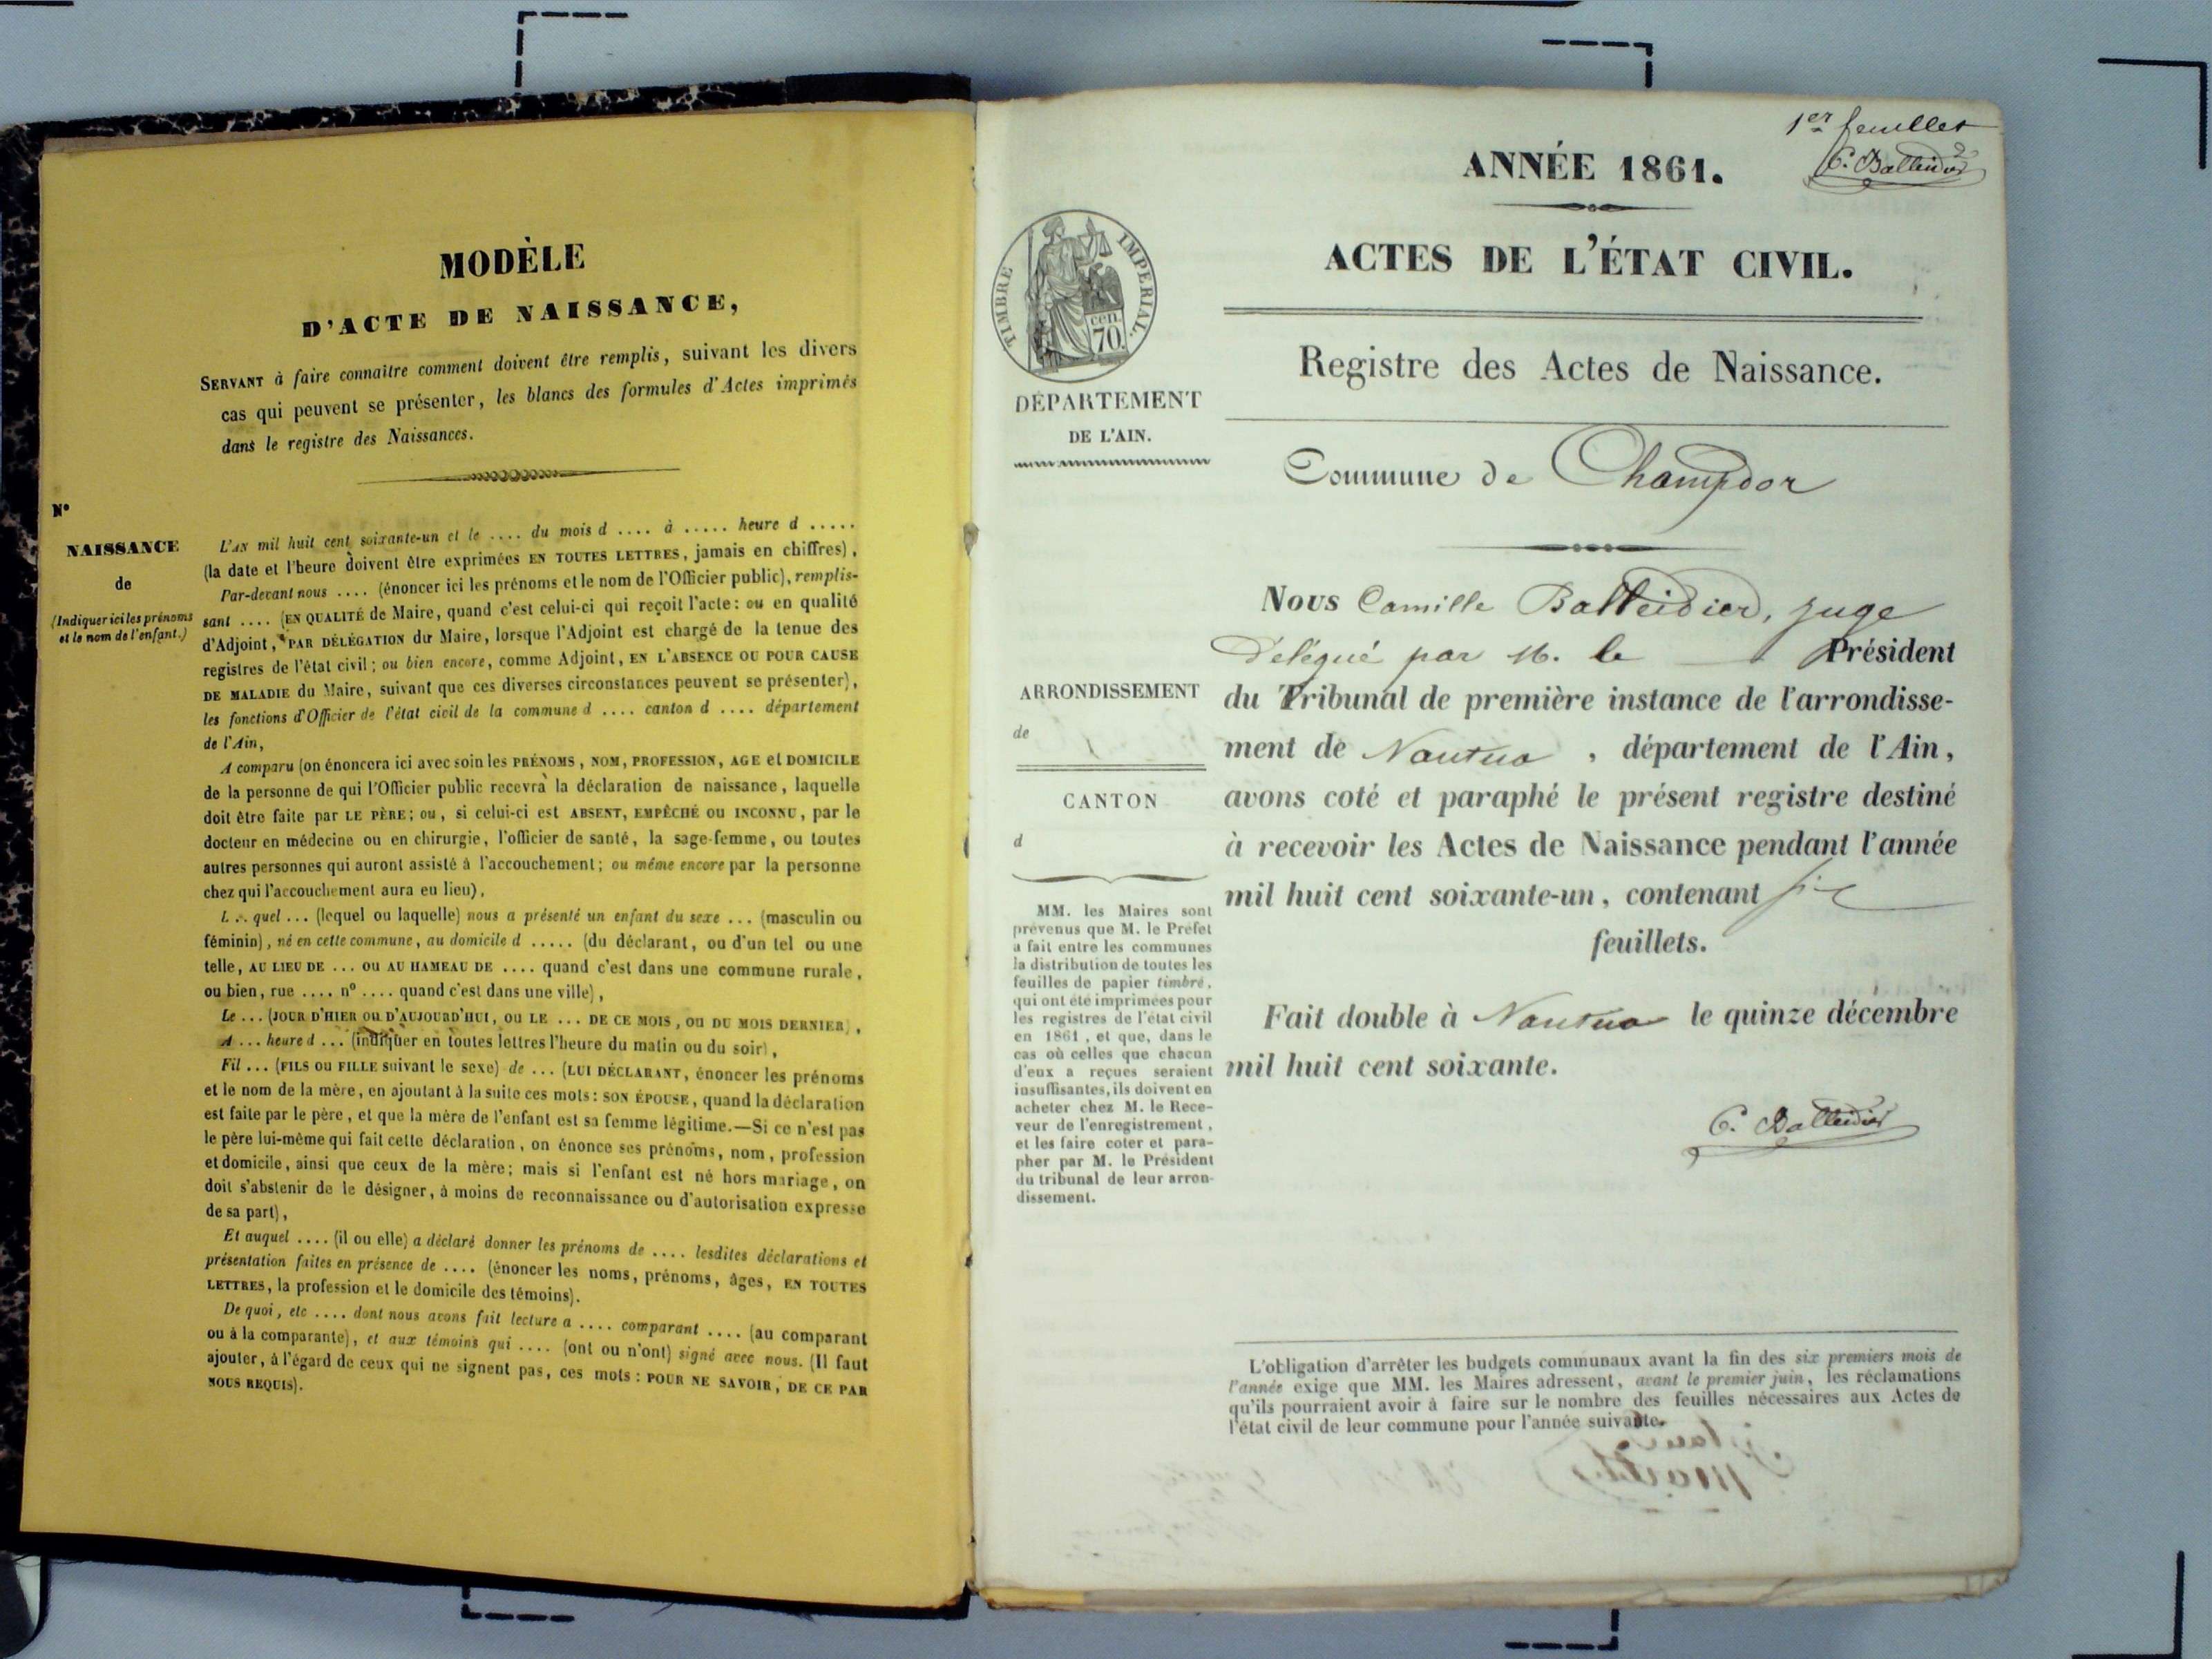 MODÈLE
D'ACTE DE NAISSANCE,
SERVANT à faire connaitre comment doivent être remplis, suivant les divers
cas qui peuvent se présenter, les blancs des formules d'Actes imprimés
dans le registre des Naissances.
N°
NAISSANCE
de
(Indiquer ici les prénoms
et le nom de l'enfant.)
L'AN mil huit cent soixante-un et le .... du mois d .... à ..... heure d .....
(la date et l'heure doivent être exprimées EN TOUTES LETTRES, jamais en chiffres),
Par-devant nous .... (énoncer ici les prénoms et le nom de l'Officier public), remplis-
sant .... (EN QUALITÉ de Maire, quand c'est celui-ci qui reçoit l'acte: ou en qualité
d'Adjoint, PAR DÉLÉGATION du Maire, lorsque l'Adjoint est chargé de la tenue des
registres de l'état civil; ou bien encore, comme Adjoint, EN L'ABSENCE OU POUR CAUSE
DE MALADIE du Maire, suivant que ces diverses circonstances peuvent se présenter),
les fonctions d'Officier de l'état civil de la commune d .... canton d .... département
de l'Ain,
A comparu (on énoncera ici avec soin les PRÉNOMS, NOM, PROFESSION, AGE et DOMICILE
de la personne de qui l'Officier public recevra la déclaration de naissance, laquelle
doit être faite par LE PÈRE; ou, si celui-ci est ABSENT, EMPÊCHÉ OU INCONNU, par le
docteur en médecine ou en chirurgie, l'officier de santé, la sage-femme, ou toutes
autres personnes qui auront assisté à l'accouchement; ou même encore par la personne
chez qui l'accouchement aura eu lieu),
L .. quel ... (lequel ou laquelle) nous a présenté un enfant du sexe ... (masculin ou
féminin), né en cette commune, au domicile d ..... (du déclarant, ou d'un tel ou une
telle, AU LIEU DE ... OU AU HAMEAU DE .... quand c'est dans une commune rurale,
ou bien, rue .... n° .... quand c'est dans une ville),
Le ... (JOUR D'HIER OU D'AUJOURD'HUI, OU LE ... DE CE MOIS, OU DU MOIS DERNIER),
A ... heure d ... (indiquer en toutes lettres l'heure du matin ou du soir),
Fil ... (FILS OU FILLE suivant le sexe) de ... (LUI DÉCLARANT, énoncer les prénoms
et le nom de la mère, en ajoutant à la suite ces mots: SON ÉPOUSE, quand la déclaration
est faite par le père, et que la mère de l'enfant est sa femme légitime.—Si ce n'est pas
le père lui-même qui fait cette déclaration, on énonce ses prénoms, nom, profession
et domicile, ainsi que ceux de la mère; mais si l'enfant est né hors mariage, on
doit s'abstenir de le désigner, à moins de reconnaissance ou d'autorisation expresse
de sa part),
Et auquel .... (il ou elle) a déclaré donner les prénoms de .... lesdites déclarations et
présentation faites en présence de .... (énoncer les noms, prénoms, âges, EN TOUTES
LETTRES, la profession et le domicile des témoins).
De quoi, etc .... dont nous avons fait lecture a .... comparant .... (au comparant
ou à la comparante), et aux témoins qui .... (ont ou n'ont) signé avec nous. (Il faut
ajouter, à l'égard de ceux qui ne signent pas, ces mots: POUR NE SAVOIR, DE CE PAR
NOUS REQUIS).
1er feuillet
C. Balleidier
ANNÉE 1861.
ACTES DE L'ÉTAT CIVIL.
TIMBRE IMPERIAL.
cen.
70.
Registre des Actes de Naissance.
DÉPARTEMENT
DE L'AIN.
Commune de Champdor
Nous Camille Balleidier, juge
Délégué par M. le Président
du Tribunal de première instance de l'arrondisse-
ment de Nantua, département de l'Ain,
avons coté et paraphé le présent registre destiné
à recevoir les Actes de Naissance pendant l'année
mil huit cent soixante-un, contenant six
feuillets.
Fait double à Nantua le quinze décembre
mil huit cent soixante.
C. Balleidier
ARRONDISSEMENT
de
CANTON
d
MM. les Maires sont
prévenus que M. le Préfet
a fait entre les communes
la distribution de toutes les
feuilles de papier timbré,
qui ont été imprimées pour
les registres de l'état civil
en 1861, et que, dans le
cas où celles que chacun
d'eux a reçues seraient
insuffisantes, ils doivent en
acheter chez M. le Rece-
veur de l'enregistrement,
et les faire coter et para-
pher par M. le Président
du tribunal de leur arron-
dissement.
L'obligation d'arrêter les budgets communaux avant la fin des six premiers mois de
l'année exige que MM. les Maires adressent, avant le premier juin, les réclamations
qu'ils pourraient avoir à faire sur le nombre des feuilles nécessaires aux Actes de
l'état civil de leur commune pour l'année suivante.